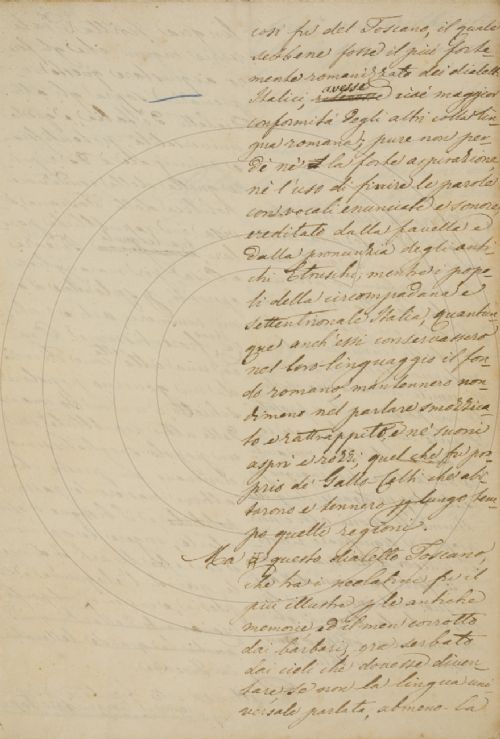 così fu del Toscano, il quale
sebbene fosse il più forte
mente romanizzato dei dialetti
Italici, avesse cioè maggior
conformità degli altri colla lin
gua romana; pure non per
dè nè la forte aspirazione
nè l'uso di finire le parole
con vocali enunciate e sonore
ereditato dalla favella e
dalla pronunzia degli anti-
chi Etruschi; mentre i popo
li della circompadana e
settentrionale Italia, quantun-
que anch'essi conservassero
nel loro linguaggio il fon
do romano, mantennero non-
dimeno nel parlare smozzica
to e rattrappito, e nè suoni
aspri e rozzi, quel che fu pro
prio de' Gallo Celti che abi
tarono e tennero p lungo tem
po quelle regioni.
Ma questo dialetto Toscano,
che tra i neolatini fu il
più illustre p le antiche
memorie ed il men corrotto
dai barbari; era serbato
dai cieli che dovesse diven
tare se non la lingua uni
versale parlata, almeno la